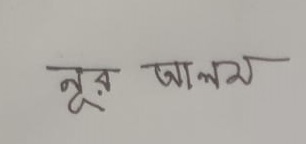 নূর আলম